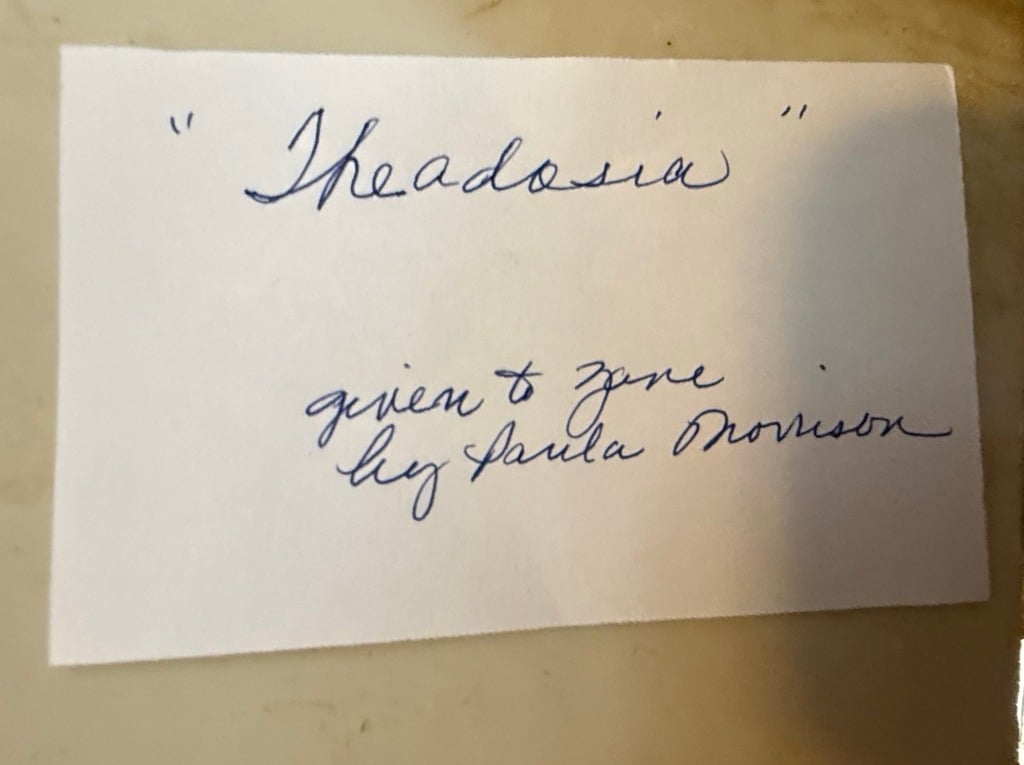 " Theadosia "
given to Zane
by Paula Morrison